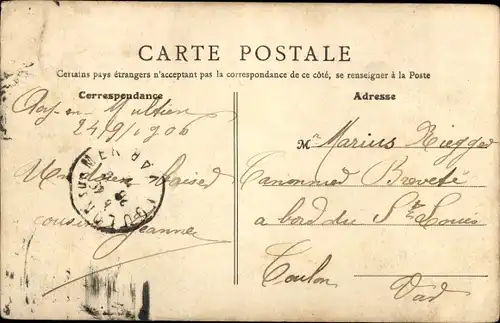 CARTE POSTALE
Certains pays étrangers n'acceptant pas la correspondance de ce côté, se renseigner à la Poste
Correspondance
Adresse
May-en-Multien
24/9/1906
Un doux baiser
cousine Jeanne
Mr Marius Riegger
Canonnier Breveté
a bord du St Louis
Toulon
Var